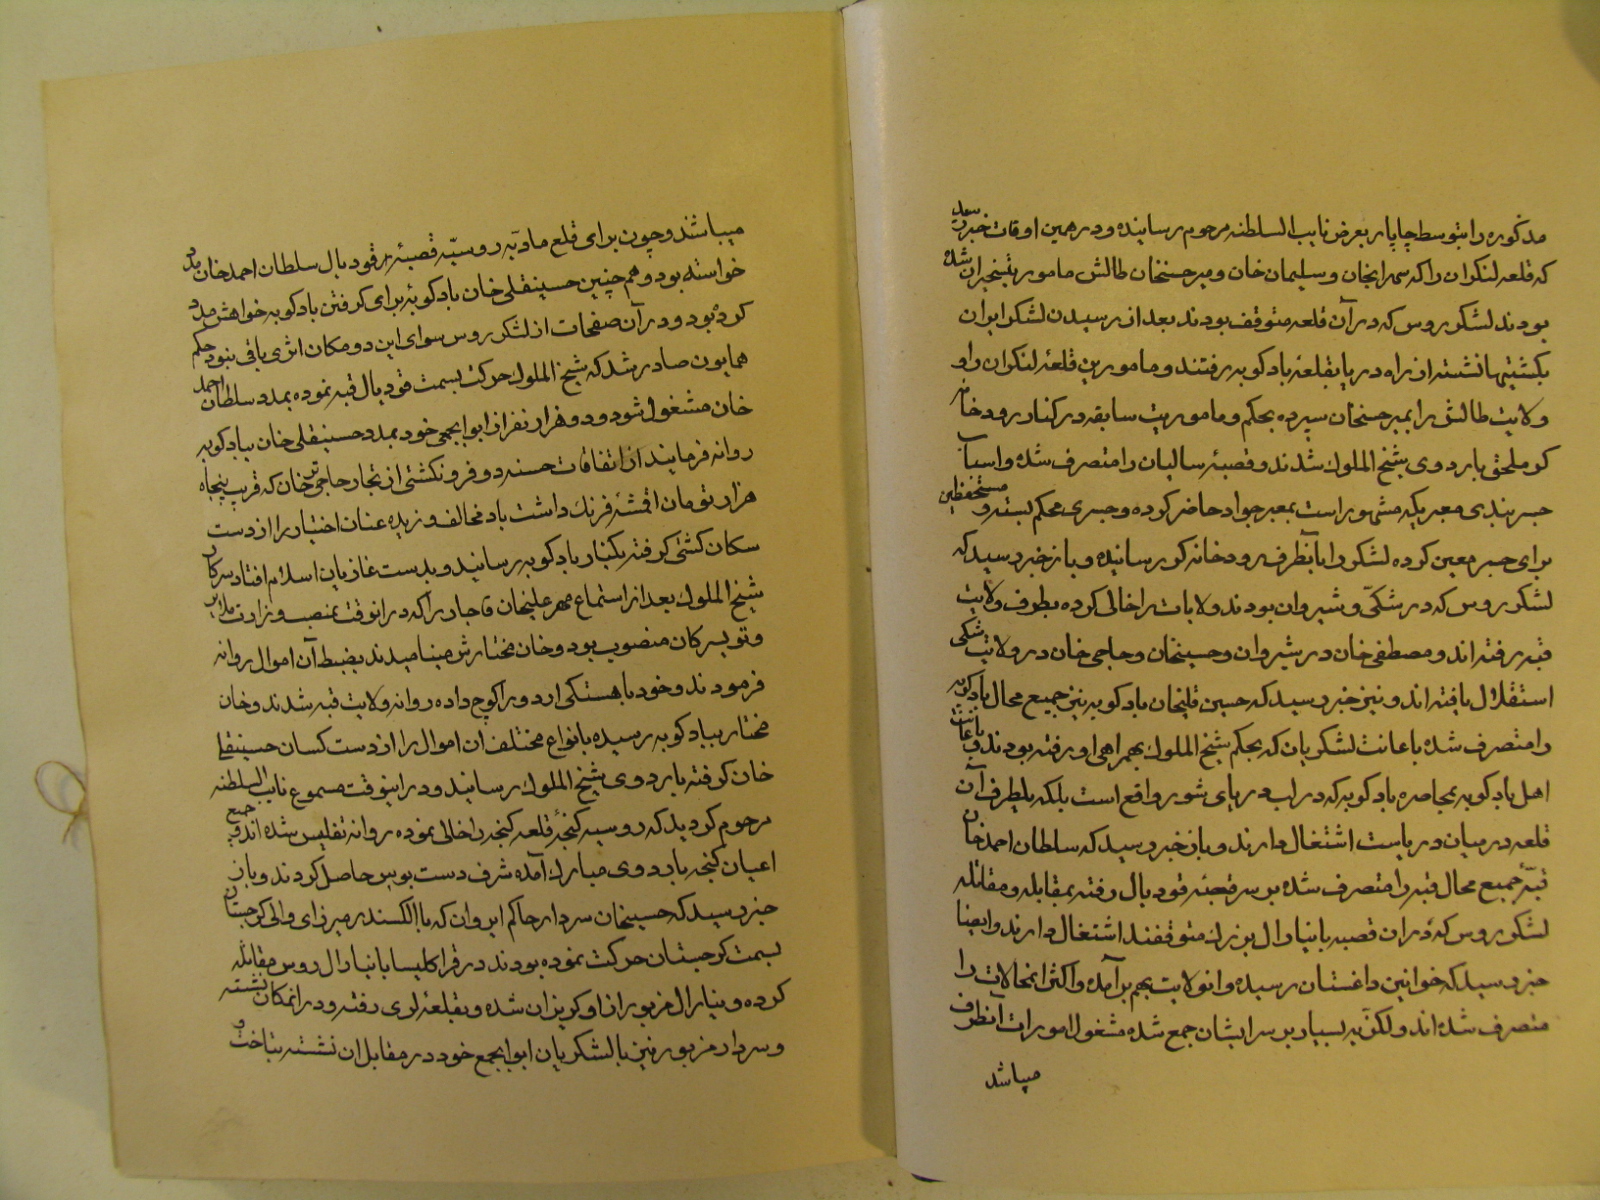 مذکوره را بتوسط چاپار بعرض نایب السلطنه مرحوم رسانیده و در همین اوقات خبر رسید
که قلعه لنکران را که سهرابخان و سلیمان خان و میر حسنخان طالش مامور بتسخیر ان شده
بودند لشکر روس که در آن قلعه متوقف بودند بعد از رسیدن لشکر ایران
بکشتیها نشسته از راه دریا بقلعه بادکوبه رفتند و مامورین قلعه لنکران را و
ولایت طالش را بمیر حسنخان سپرده بحکم و ماموریت سابقه در کنار رودخانه
کر ملحق باردوی شیخ الملوک شدند و قصبه سالیان را متصرف شده و اسباب
جسر بندی معبریکه مشهور است بمعبر جواد حاضر کرده و جسری محکم بسته و مستحفظین
برای جسر معین کرده لشکر را بآنطرف رودخانه کر رسانیده و باز خبر رسید که
لشکر روس که در شکّی و شیروان بودند ولایات را خالی کرده بطرف ولایت
قبه رفته اند و مصطفی خان در شیروان و حسینخان و حاجی خان در ولایت شکی
استقلال یافته اند و نیز خبر رسید که حسین قلیخان بادکوبه نیز جمیع محال بادکوبه
را متصرف شده با عانت لشکریان که بحکم شیخ الملوک بهمراهی او رفته بودند و باعانت
اهل بادکوبه بمحاصره بادکوبه که در لب دریای شور واقع است بلکه یکطرف آن
قلعه در میان دریاست اشتغال دارند و باز خبر رسید که سلطان احمد خان
قبّه جمیع محال قبه را متصرف شده بر سر قصبه قودیال رفته بمقابله و مقاتله
لشکر روس که در ان قصبه با نیارال بزرك متوقفند اشتغال دارند و ایضا
خبر رسید که خوانین داغستان رسیده و انولایت بهم برآمده و اکثر انمحالات را
متصرف شده اند و لکزیه بسیار بر سر ایشان جمع شده مشغول امورات آنطرف
میباشد
میباشند و چون برای قلع مادّیه روسیّه قصبه قودیال سلطان احمد خان مدد
خواسته بود و هم چنین حسینقلی خان بادکوبه برای کرفتن بادکوبه خواهش مدد
کرده بود و در آن صفحات از لشکر روس سوای این دو مکان اثری باقی نبود حکم
همایون صادر شد که شیخ الملوك حرکت بسمت قودیال قبه نموده بمدد سلطان احمد
خان مشغول شود و دو هزار نفر از ابوابجمعی خود بمدد حسینقلی خان ببادکوبه
روانه فرمایند از اتفاقات حسنه دو فروند کشتی از تجار حاجی ترخان که قریب پنجاه
هزار تومان اقمشه فرنك داشت باد مخالف وزیده عنان اختیار را از دست
سکان کشتی کرفته بکنار بادکوبه رسانید و بدست غازیان اسلام افتاد سرکار
شیخ الملوك بعد از استماع مهر علیخان قاجار را که در انوقت بمنصب وزارت ملایر
و تویسرکان منصوب بود و خان مختارش مینامیدند بضبط آن اموال روانه
فرمودند و خود باهستکی اردو را کوچ داده روانه ولایت قبه شدند و خان
مختار ببادکوبه رسیده بانواع مختلف ان اموال را از دست کسان حسینقلی
خان کرفته باردوی شیخ الملوك رسانید و در اینوقت مسموع نایب السلطنه
مرحوم کردید که روسیه کنجه قلعه کنجه را خالی نموده روانه تفلیس شده اند و جمیع
اعیان کنجه باردوی مبارك آمده شرف دست بوس حاصل کردند و باز
خبر رسید که حسینخان سردار حاکم ایروان که با الکسندر میرزای والی کرجستان
بسمت کرجستان حرکت نموده بودند در قراکلیسا با نیارال روس مقاتله
کرده و نیارال مزبور از او کریزان شده و بقلعه لوری رفته و در انمکان نشسته
و سردار مزبور نیز با لشکریان ابوابجمع خود در مقابل ان نشسته بتاخت و